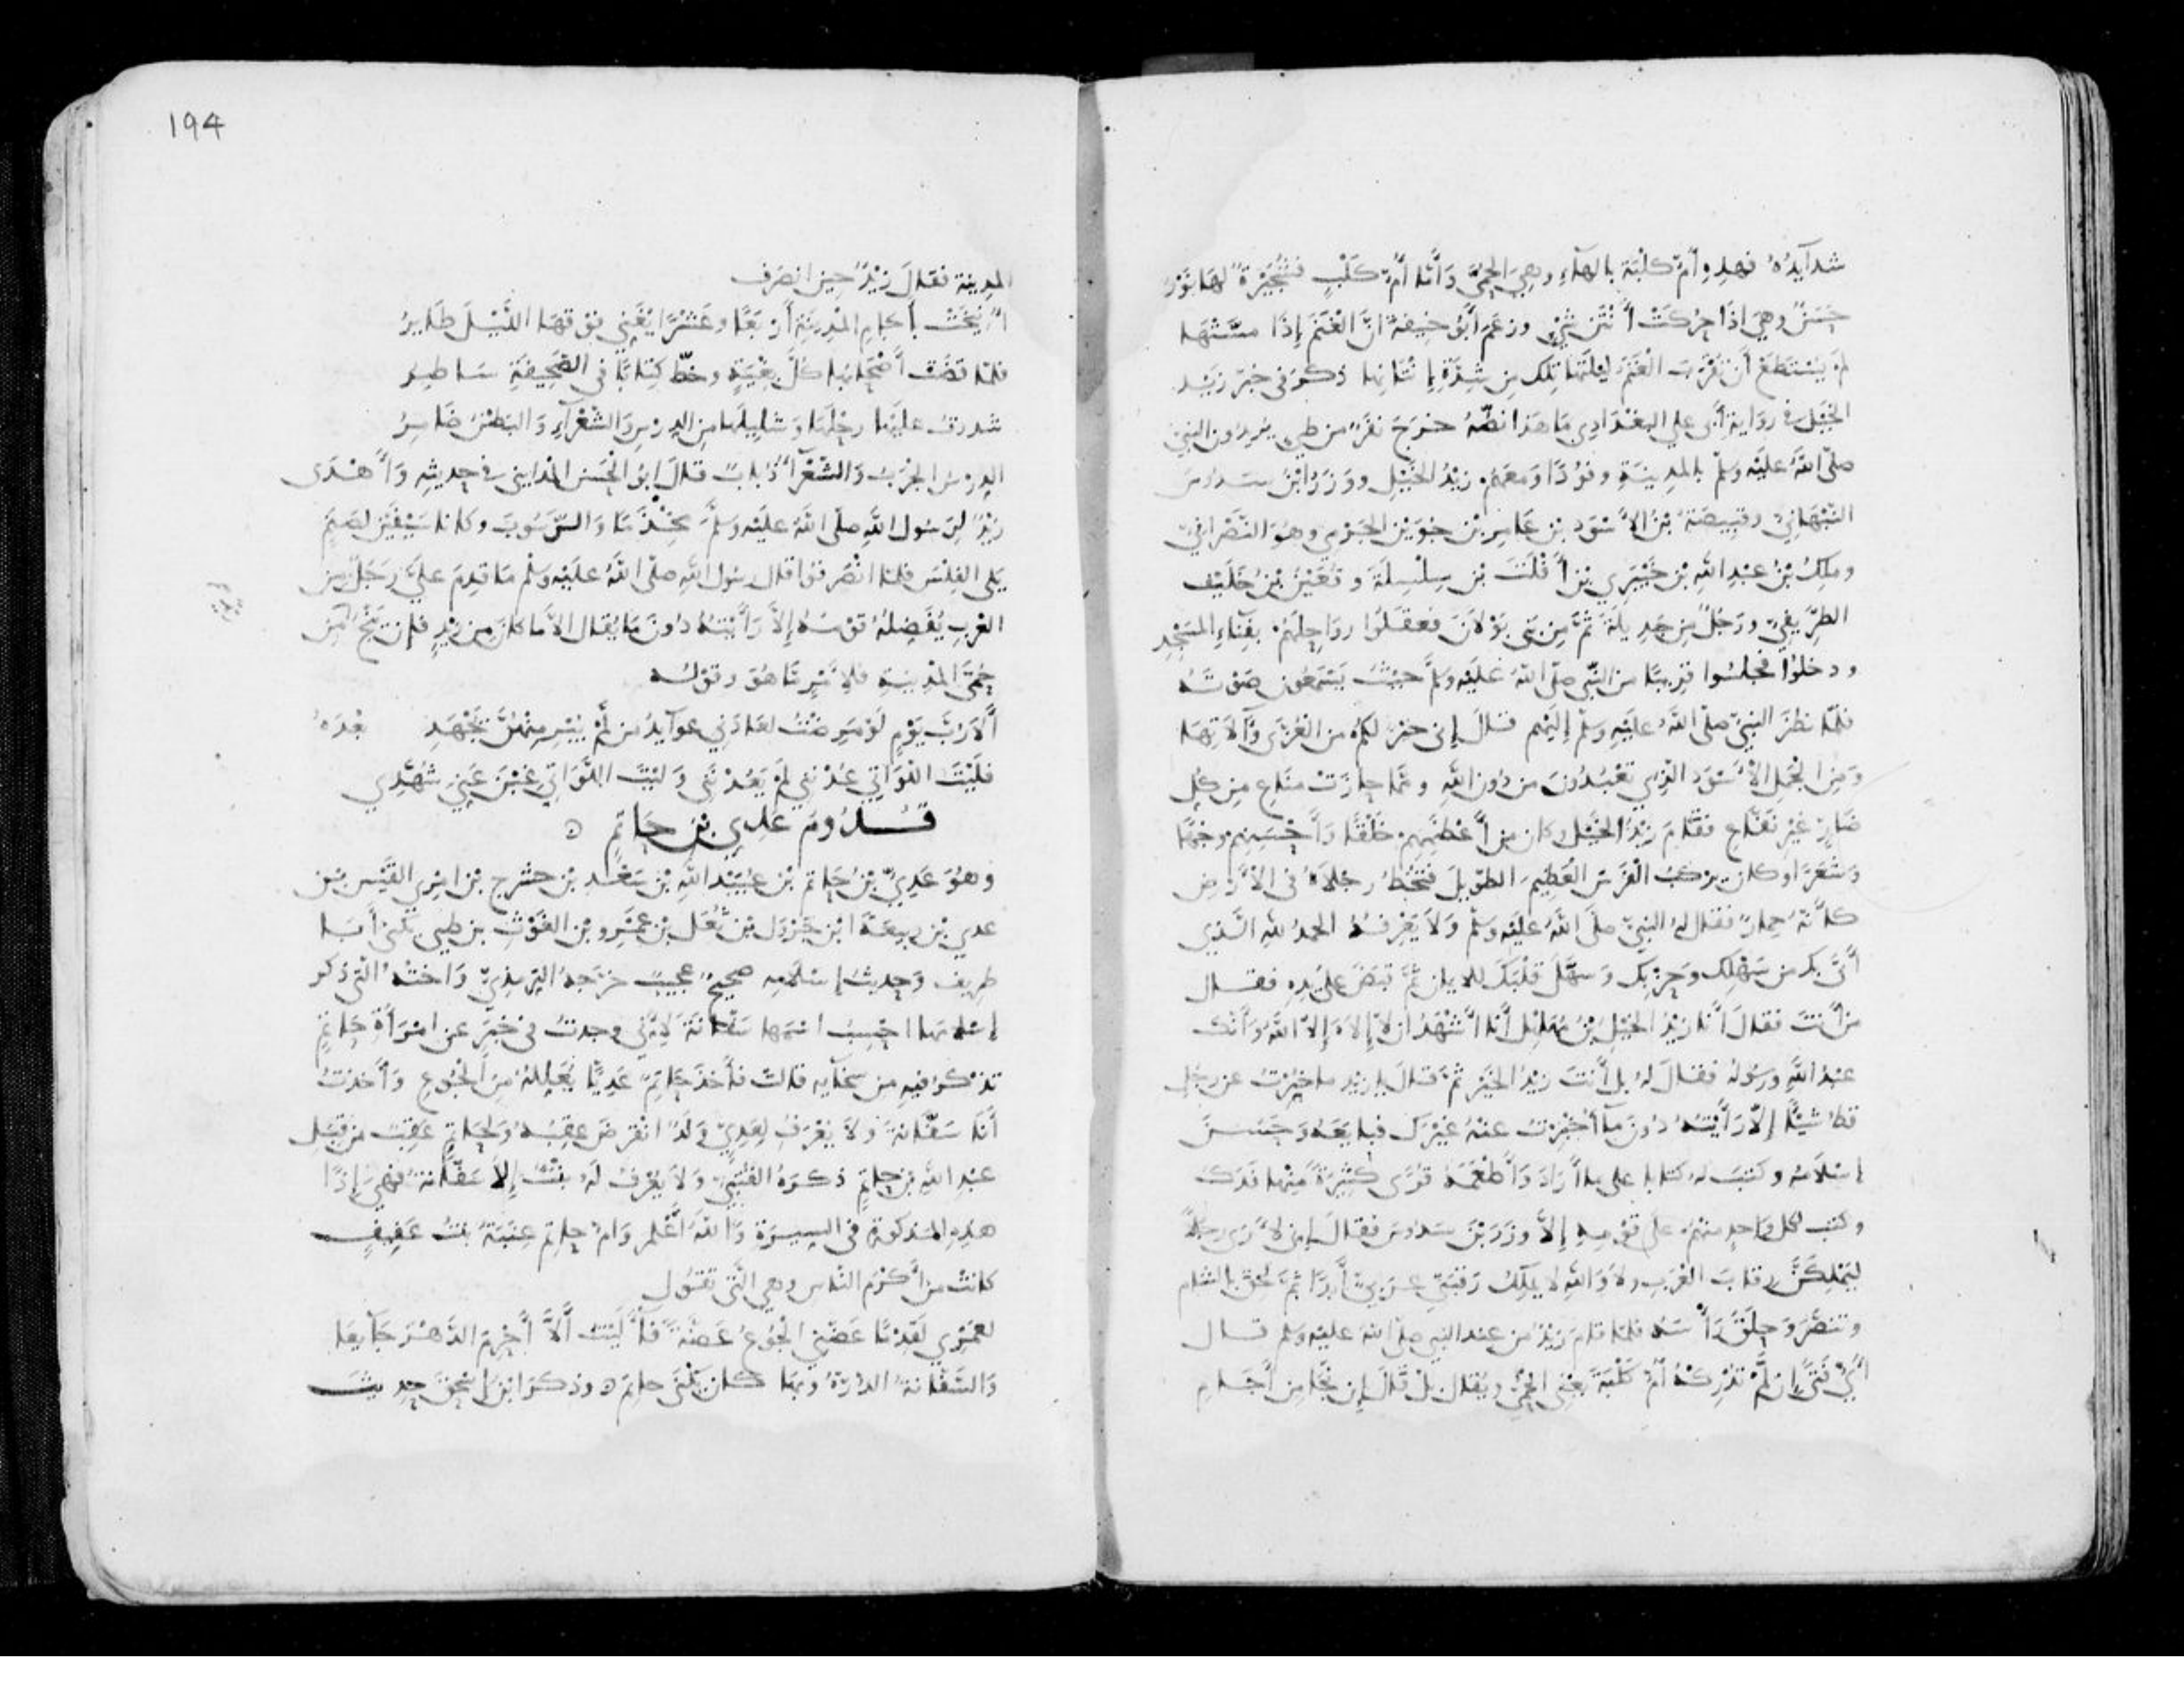 شدآيده فهذه أم كلبة بالهآء وهي الحمى وأما أم كلب فشجيرة لها نور
حسن وهي اذا حركت أنتن شيء وزعم أبو حنيفة ان الغنم إذا مستها
لم يستطع أن تقرب الغنم ليلتها تلك من شدة إنتانها ذكر في خبر زيد
الخيل في رواية أبي علي البغدادي ما هذا نصه خرج نفر من طيء يريدون النبي
صلى الله عليه وسلم بالمدينة وفودا ومعهم زيد الخيل ووزر ابن سدوس
النبهاني وقبيصة بن الأسود بن عامر بن جوين الجرمي وهو النصراني
وملك بن عبد الله بن خيبري بن أفلت بن سلسلة وقعين بن خليف
الطريفي ورجل من جديلة ثم من بني بولان فعقلوا رواحلهم بفناء المسجد
ودخلوا فجلسوا قريبا من النبي صلى الله عليه وسلم حيث يسمعون صوته
فلما نظر النبي صلى الله عليه وسلم إليهم قال إني خير لكم من العزى ولاتها
ومن الجمل الأسود الذي تعبدون من دون الله ومما حازت مناع من كل
ضار غير نفاع فقام زيد الخيل وكان من أعظمهم خلقا وأحسنهم وجها
وشعرا وكان يركب الفرس العظيم الطويل فتخط رجلاه في الأرض
كأنه حمار فقال له النبي صلى الله عليه وسلم ولا يعرفه الحمد لله الذي
أتى بك من سهلك وحزنك وسهل قلبك للايمان ثم قبض على يده فقال
من أنت فقال أنا زيد الخيل بن مهلهل أنا أشهد أن لا إله إلا الله وأنك
عبد الله ورسوله فقال له بل أنت زيد الخير ثم قال يا زيد ما خبرت عن رجل
قط شيئا إلا رأيته دون ما أخبرت عنه غيرك فبايعه وحسن
إسلامه وكتب له كتابا على ما أراد وأطعمه قرى كثيرة منها فدك
وكتب لكل واحد منهم على قومه إلا وزر بن سدوس فقال إني لأرى رجلا
ليملكن رقاب العرب ولا والله لا يملك رقبتي عربي أبدا ثم لحق بالشام
وتنصر وحلق رأسه فلما قام زيد من عند النبي صلى الله عليه وسلم قال
أي فتى إن لم تدركه أم كلبة يعني الحمى ويقال بل قال إن نجا من أجام
194
المدينة فقال زيد حين انصرف
أنيخت بأجام المدينة أربعا وعشرا يغني فوقها الليل طاير
فلما قضت أصحابها كل بغية وخط كتابا في الصحيفة ساطر
شددت عليها رحلها وشليلها من الدرس والشعراء والبطن ضامر
الدرس الجرب والشعرآء ذباب قال ابو الحسن المدايني في حديثه وأهدى
زيد لرسول الله صلى الله عليه وسلم مخذما والرسوب وكانا سيفين لصنم
يلي الفلس فلما انصرفوا قال رسول الله صلى الله عليه وسلم ما قدم علي رجل من
العرب يفضله قومه إلا رأيته دون ما يقال الا ما كان من زيد فإن ينج من
حمى المدينة فلأمر ما هو وقوله
ألا رب يوم لو مرضت لعادني عوآيد من لم يبر منهن يجهد بعده
فليت اللواتي عدنني لم يعدنني وليت اللواتي غبن عني شهدي
قدوم عدي بن حاتم
وهو عدي بن حاتم بن عبيد الله بن سعد بن حشرج بن امري القيس بن
عدي بن ربيعة ابن جرول بن ثعل بن عمرو بن الغوث بن طيء يكنى أبا
طريف وحديث إسلامه صحيح عجيب خرجه الترمذي واخته التي ذكر
إسلامها احسب اسمها سفانة لأني وجدت في خبر عن امرأة حاتم
تذكر فيه من سخآيه قالت فأخذ حاتم عديا يعلله من الجوع وأخذت
أنا سفانة ولا يعرف لعدي ولد انقرض عقبه ولحاتم عقب من قبل
عبد الله بن حاتم ذكره القتبي ولا يعرف له بنت إلا سفانة فهي إذا
هذه المذكورة في السيرة والله أعلم وأم حاتم عنبة بنت عفيف
كانت من أكرم الناس وهي التي تقول
لعمري لقدما عضني الجوع عضة فآليت ألا أحرم الدهر جآيعا
والسفانة الدرة وبها كان يكنى حاتم وذكر ابن اسحق حديث